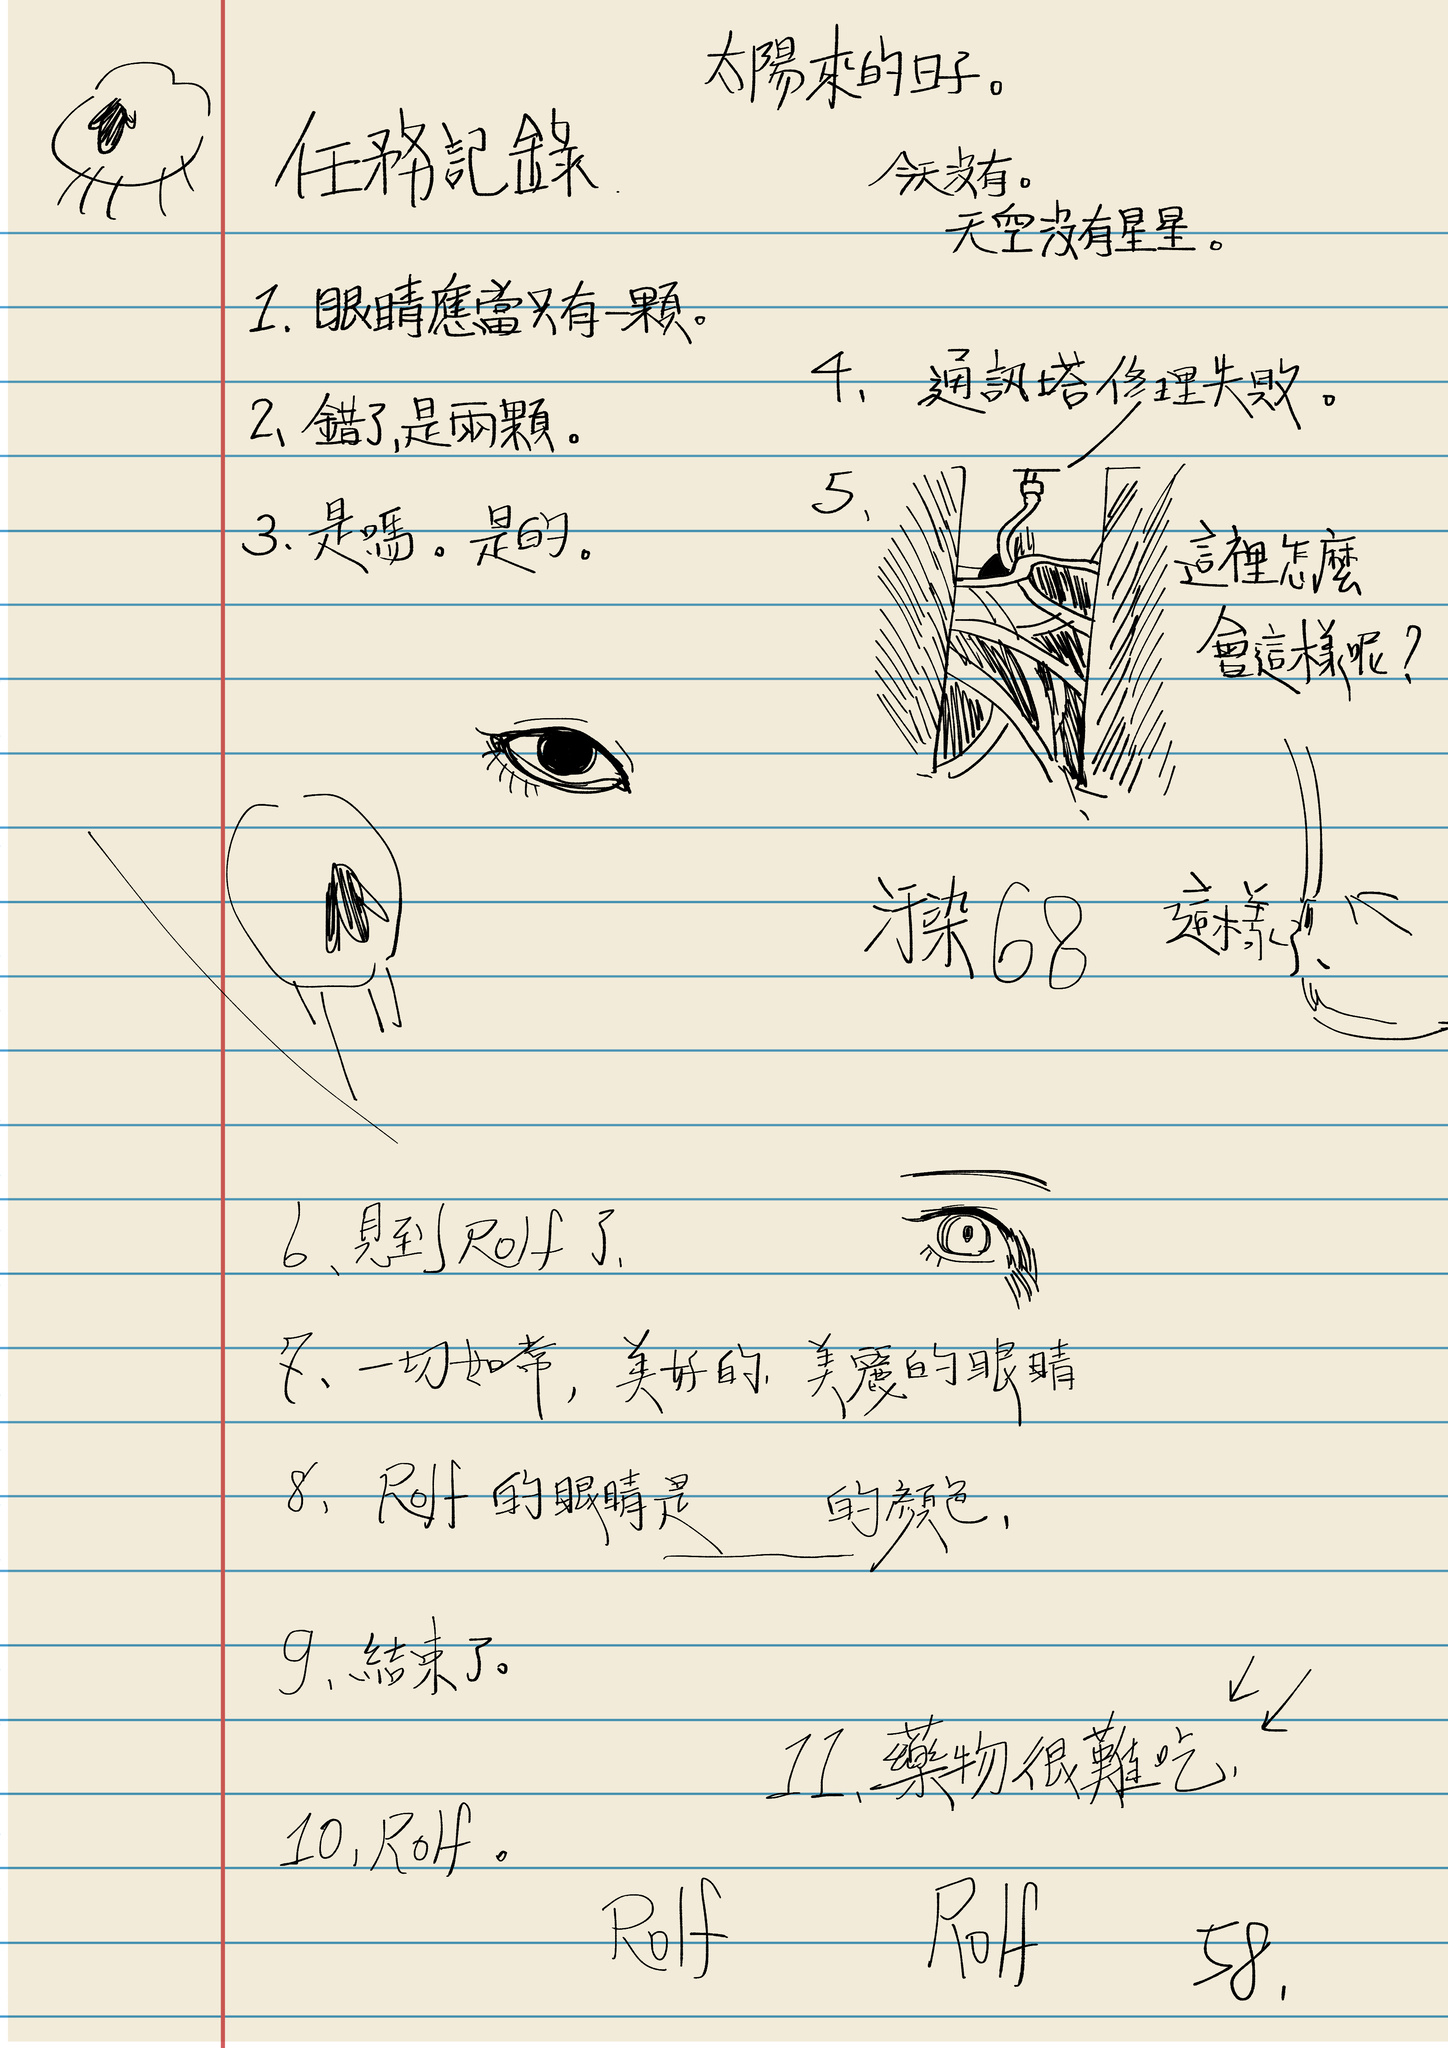 太陽來的日子。
任務記錄.
今天沒有。
天空沒有星星。
1. 眼睛應當只有一顆。
2、錯了,是兩顆。
3. 是嗎。是的。
4、通訊塔修理失敗。
5、
這裡怎麼
會這樣呢？
汙染68
這樣
6、見到Rolf了、
7、一切如常，美好的、美麗的眼睛
8、Rolf的眼睛是＿＿＿的顏色、
9、結束了。
11、藥物很難吃、
10、Rolf。
Rolf Rolf 58、